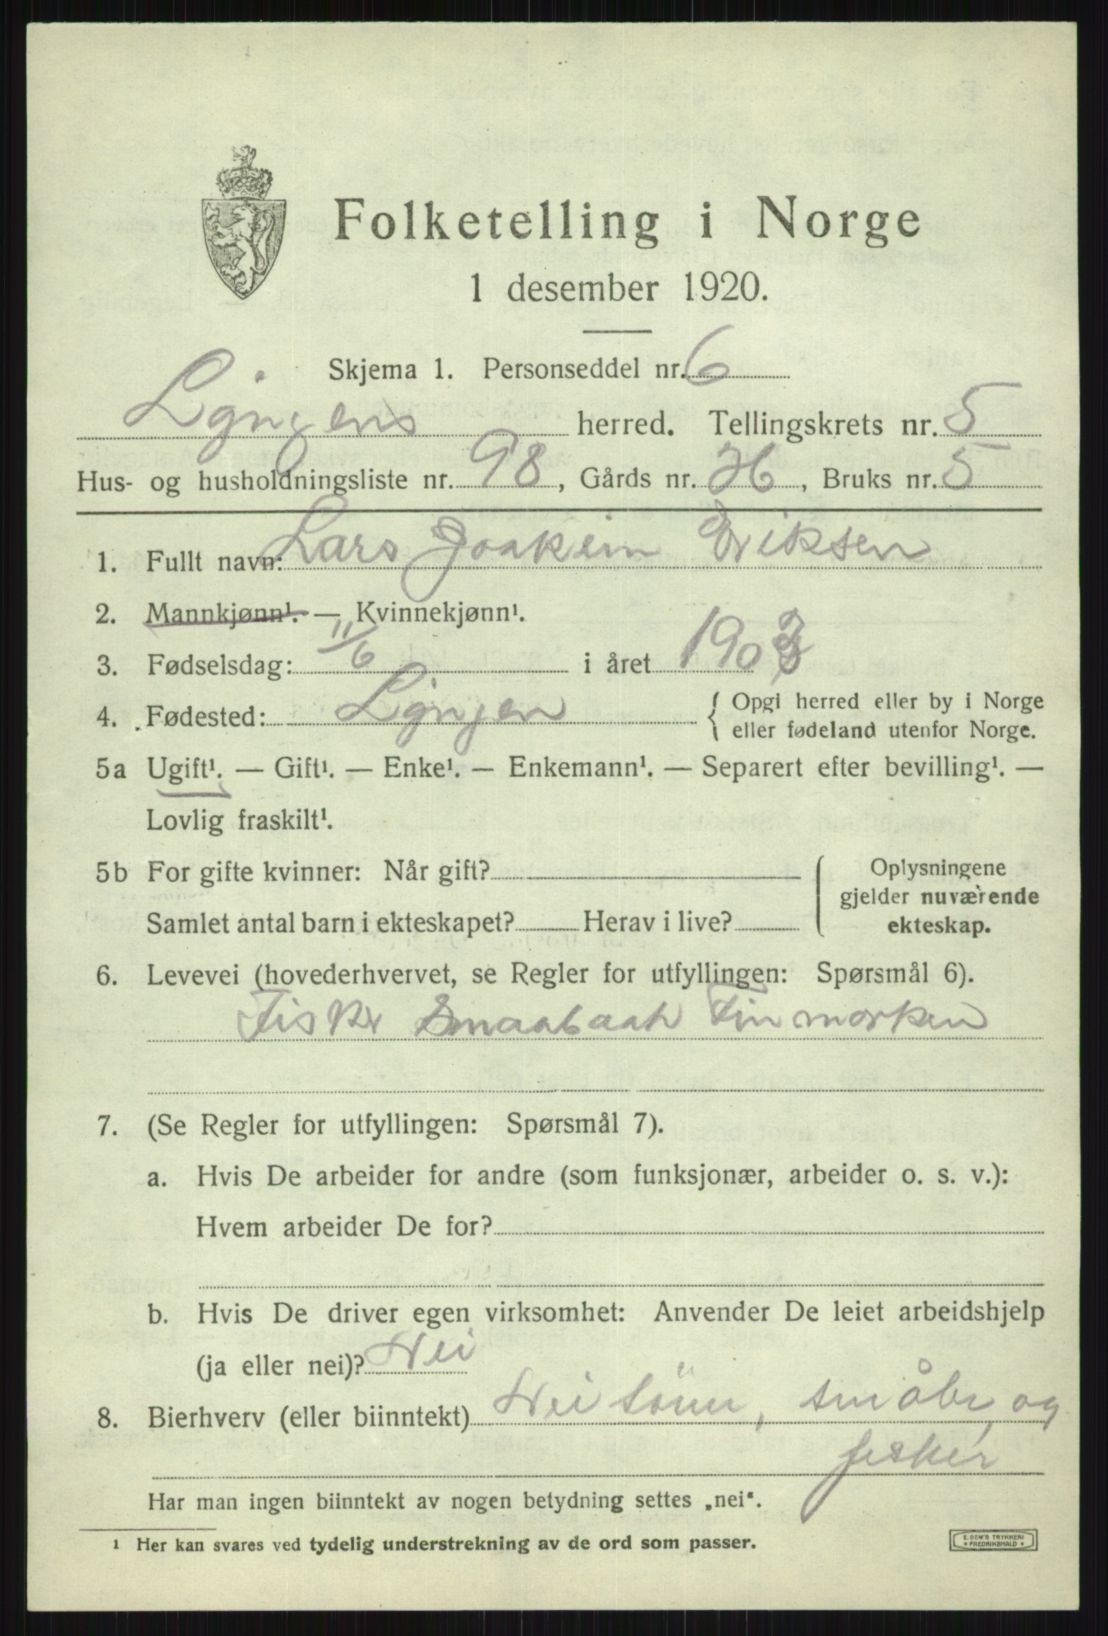 Folketelling i Norge
1 desember 1920.
Skjema 1. Personseddel nr. 6
Lÿngens herred. Tellingskrets nr. 5
Hus- og husholdningsliste nr. 98, Gårds nr. 26, Bruks nr. 5
1. Fullt navn: Lars Joakim Eriksen
2. Mannkjønn¹. — Kvinnekjønn¹.
3. Fødselsdag: 11/6 i året 1903
4. Fødested: Lÿngen { Opgi herred eller by i Norge
eller fødeland utenfor Norge.
5a Ugift¹. — Gift¹. — Enke¹. — Enkemann¹. — Separert efter bevilling¹. —
Lovlig fraskilt¹.
5b For gifte kvinner: Når gift? { Oplysningene
gjelder nuværende
Samlet antal barn i ekteskapet? Herav i live? ekteskap.
6. Levevei (hovederhvervet, se Regler for utfyllingen: Spørsmål 6).
Fisker Smaabaat Finmarken
7. (Se Regler for utfyllingen: Spørsmål 7).
a. Hvis De arbeider for andre (som funksjonær, arbeider o. s. v.):
Hvem arbeider De for?
b. Hvis De driver egen virksomhet: Anvender De leiet arbeidshjelp
(ja eller nei)? Nei
8. Bierhverv (eller biinntekt) Nei Sönn, småbr. og
fisker
Har man ingen biinntekt av nogen betydning settes „nei".
¹ Her kan svares ved tydelig understrekning av de ord som passer.
E. SEM'S TRYKKERI
FREDRIKSHALD